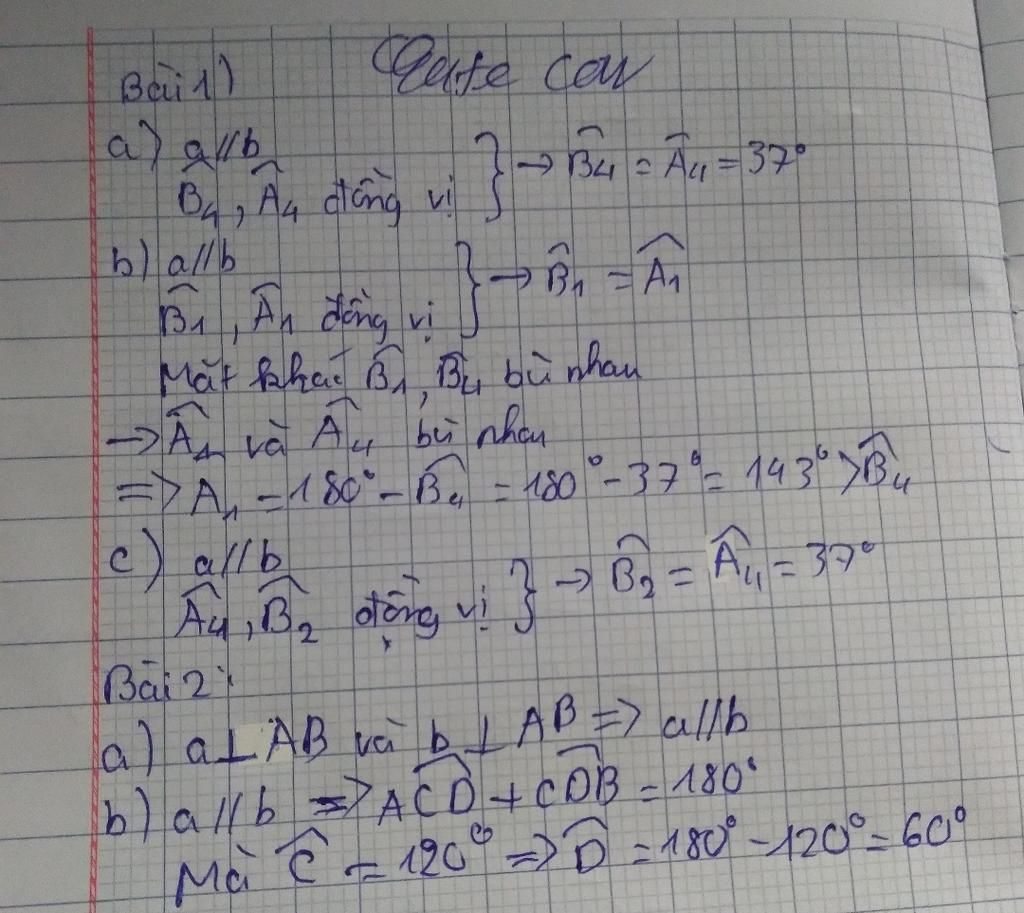 Bài 1)
a) a//b
B̂4, Â4 đồng vị } → B̂4 = Â4 = 37°
b) a//b
B̂1, Â1 đồng vị } → B̂1 = Â1
Mặt khác B̂1, B̂4 bù nhau
→ Â1 và Â4 bù nhau
=> A1 = 180° - B̂4 = 180° - 37° = 143° > B̂4
c) a//b
Â4, B̂2 đồng vị } → B̂2 = Â4 = 37°
Bài 2:
a) a⊥AB và b⊥AB => a//b
b) a//b => ACD + CDB = 180°
Mà Ĉ = 120° => D̂ = 180° - 120° = 60°